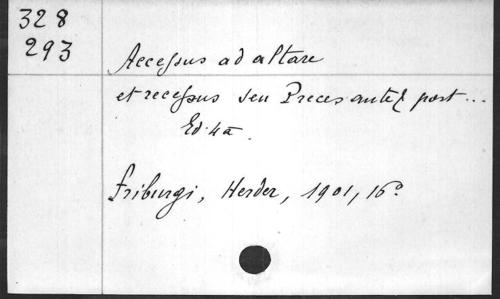 328
293
Accessus ad altare
et recessus seu Preces ante & post...
Ed. 4a.
Friburgi, Herder, 1901, 16°